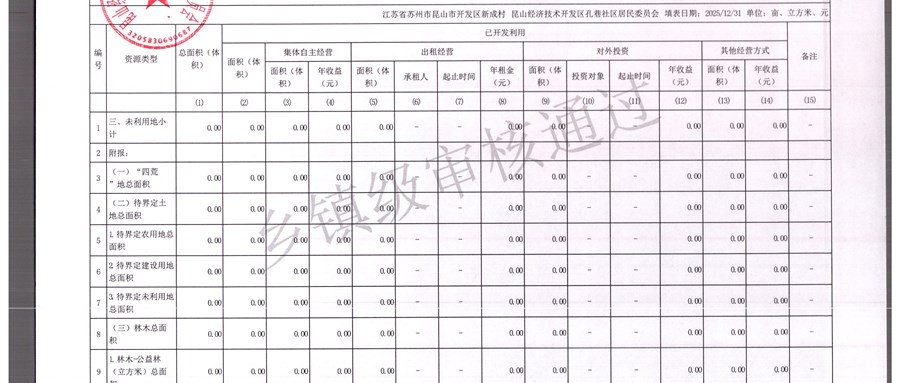 江苏省苏州市昆山市开发区新成村 昆山经济技术开发区孔巷社区居民委员会 填表日期：2025/12/31 单位：亩、立方米、元
编号 资源类型 总面积（体积） 已开发利用 备注
面积（体积） 集体自主经营 出租经营 对外投资 其他经营方式
面积（体积） 年收益（元） 面积（体积） 承租人 起止时间 年租金（元） 面积（体积） 投资对象 起止时间 年收益（元） 面积（体积） 年收益（元）
(1) (2) (3) (4) (5) (6) (7) (8) (9) (10) (11) (12) (13) (14) (15)
1 三、未利用地小计 0.00 0.00 0.00 0.00 0.00 - - 0.00 0.00 - - 0.00 0.00 0.00 -
2 附报：
3 （一）“四荒”地总面积 0.00 0.00 0.00 0.00 0.00 - - 0.00 0.00 - - 0.00 0.00 0.00 -
4 （二）待界定土地总面积 0.00 0.00 0.00 0.00 0.00 - - 0.00 0.00 - - 0.00 0.00 0.00 -
5 1.待界定农用地总面积 0.00 0.00 0.00 0.00 0.00 - - 0.00 0.00 - - 0.00 0.00 0.00 -
6 2.待界定建设用地总面积 0.00 0.00 0.00 0.00 0.00 - - 0.00 0.00 - - 0.00 0.00 0.00 -
7 3.待界定未利用地总面积 0.00 0.00 0.00 0.00 0.00 - - 0.00 0.00 - - 0.00 0.00 0.00 -
8 （三）林木总面积 0.00 0.00 0.00 0.00 0.00 - - 0.00 0.00 - - 0.00 0.00 0.00 -
9 1.林木-公益林（立方米）总面 0.00 0.00 0.00 0.00 0.00 - - 0.00 0.00 - - 0.00 0.00 0.00 -
乡镇级审核通过
3205830690687